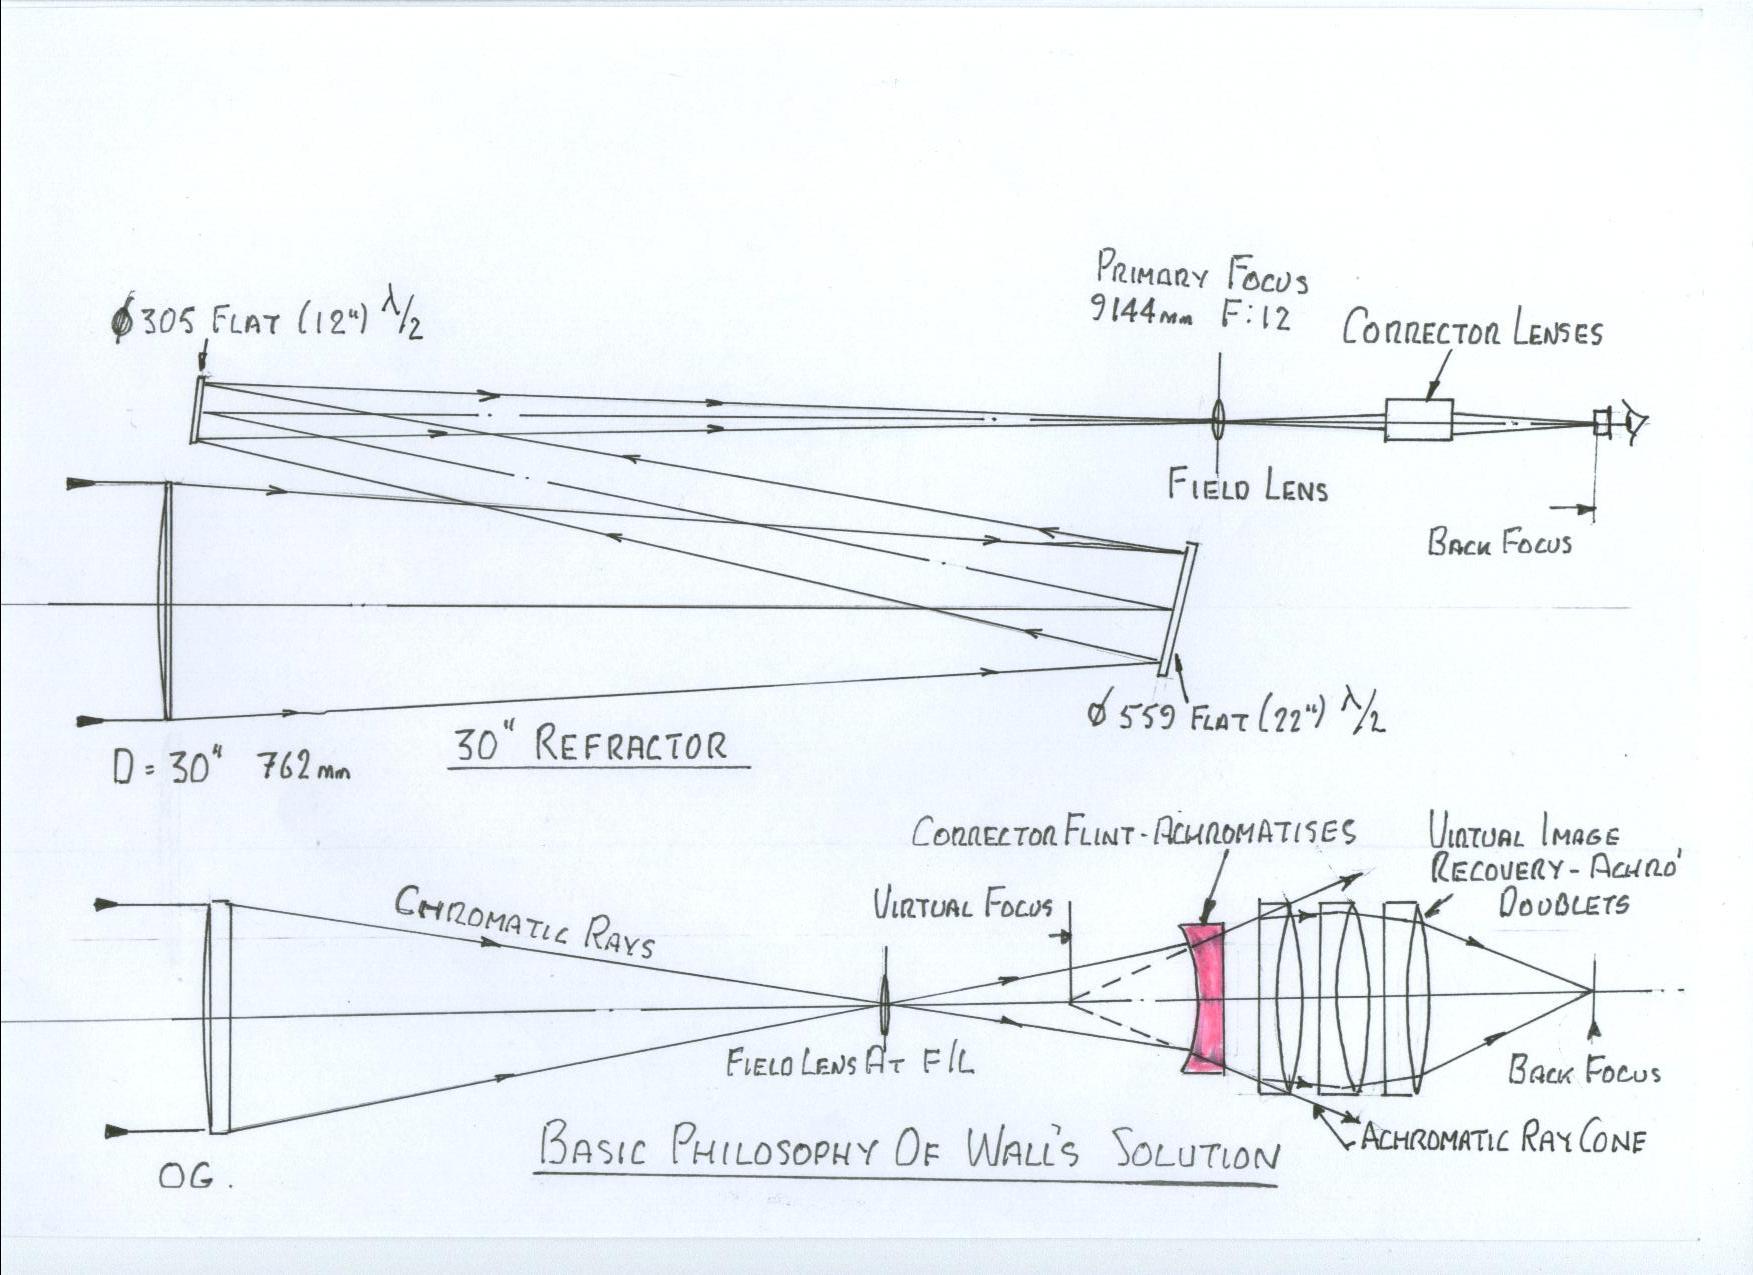 PRIMARY FOCUS
9144mm F:12
ϕ305 FLAT (12") λ/2
CORRECTOR LENSES
FIELD LENS
BACK FOCUS
ϕ 559 FLAT (22") λ/2
30" REFRACTOR
D = 30" 762mm
CORRECTOR FLINT-ACHROMATISES
VIRTUAL IMAGE
RECOVERY-ACHRO'
DOUBLETS
CHROMATIC RAYS
VIRTUAL FOCUS
FIELD LENS AT F/L
BACK FOCUS
ACHROMATIC RAY CONE
BASIC PHILOSOPHY OF WALL'S SOLUTION
OG.